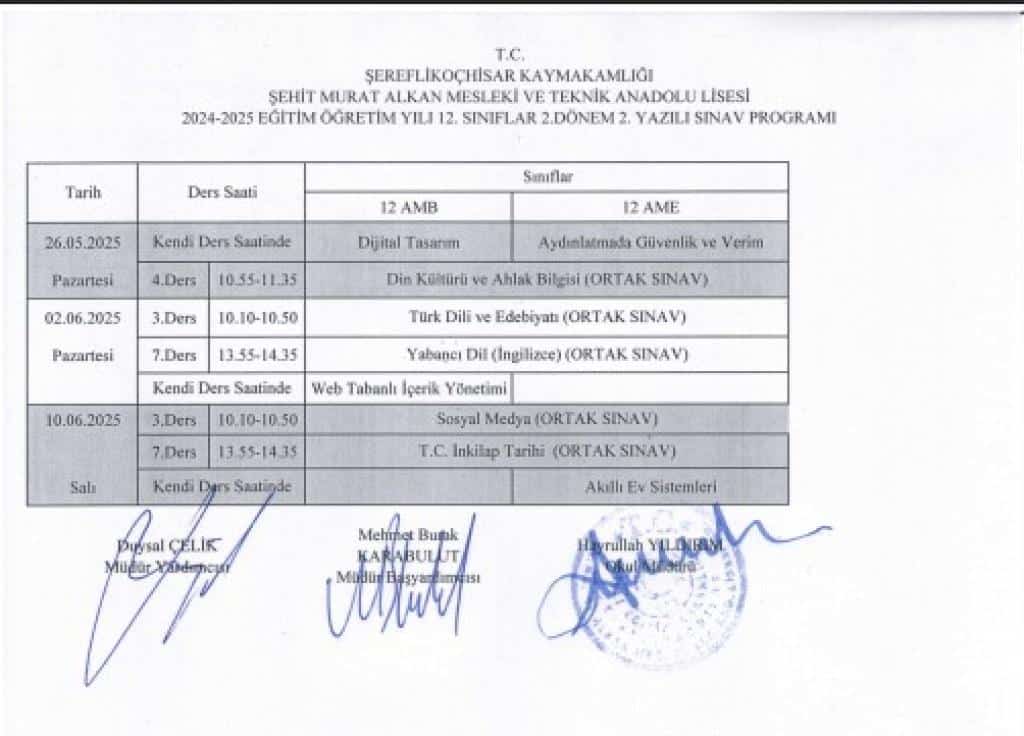 T.C.
ŞEREFLİKOÇHİSAR KAYMAKAMLIĞI
ŞEHİT MURAT ALKAN MESLEKİ VE TEKNİK ANADOLU LİSESİ
2024-2025 EĞİTİM ÖĞRETİM YILI 12. SINIFLAR 2.DÖNEM 2. YAZILI SINAV PROGRAMI
Tarih Ders Saati Sınıflar
12 AMB 12 AME
26.05.2025 Kendi Ders Saatinde Dijital Tasarım Aydınlatmada Güvenlik ve Verim
Pazartesi 4.Ders 10.55-11.35 Din Kültürü ve Ahlak Bilgisi (ORTAK SINAV)
02.06.2025 3.Ders 10.10-10.50 Türk Dili ve Edebiyatı (ORTAK SINAV)
Pazartesi 7.Ders 13.55-14.35 Yabancı Dil (İngilizce) (ORTAK SINAV)
Kendi Ders Saatinde Web Tabanlı İçerik Yönetimi
10.06.2025 3.Ders 10.10-10.50 Sosyal Medya (ORTAK SINAV)
7.Ders 13.55-14.35 T.C. İnkilap Tarihi (ORTAK SINAV)
Salı Kendi Ders Saatinde Akıllı Ev Sistemleri
Duysal ÇELİK
Müdür Yardımcısı
Mehmet Burak
KARABULUT
Müdür Başyardımcısı
Hayrullah YILDIRIM
Okul Müdürü